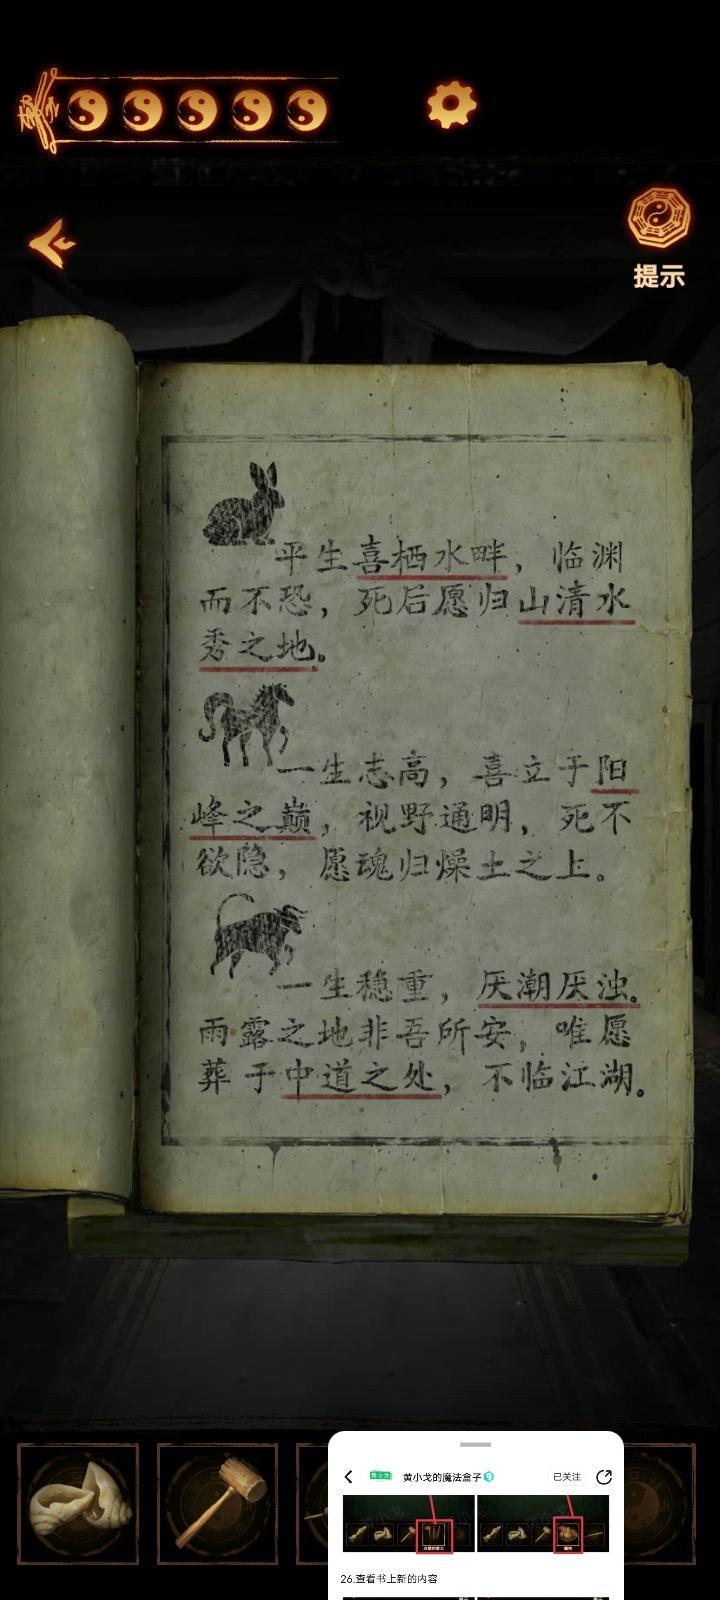 提示
平生喜栖水畔，临渊
而不恐，死后愿归山清水
秀之地。
一生志高，喜立于阳
峰之巅，视野通明，死不
欲隐，愿魂归燥土之上。
一生稳重，厌潮厌浊。
雨露之地非吾所安，唯愿
葬于中道之处，不临江湖。
黄小戈的魔法盒子
已关注
26.查看书上新的内容